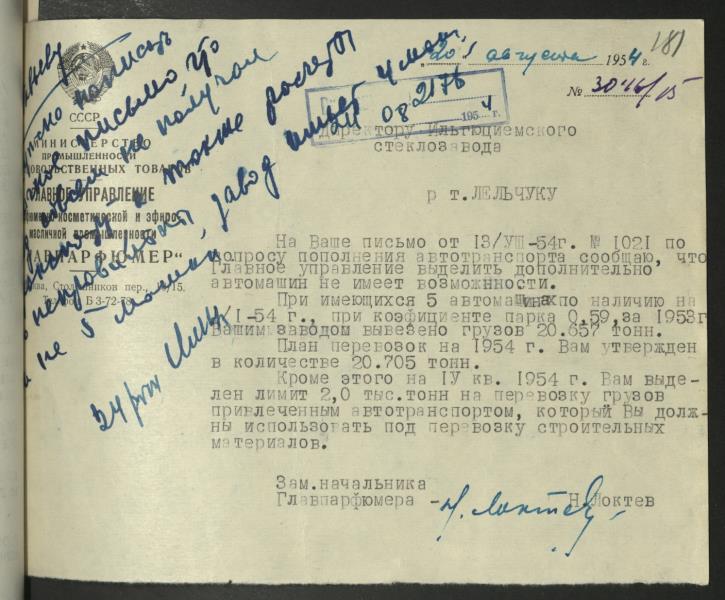 181
"20" августа 1954 г.
№ 3046/15
СССР
МИНИСТЕРСТВО
ПРОМЫШЛЕННОСТИ
ПРОДОВОЛЬСТВЕННЫХ ТОВАРОВ
ГЛАВНОЕ УПРАВЛЕНИЕ
парфюмерно-косметической и эфиро-
масличной промышленности
"ГЛАВПАРФЮМЕР"
Москва, пер.,
Б 3-72-
2176
24 08 1954 г.
Директору Ильгюциемского
стеклозавода
р т. ЛЕЛЬЧУКУ
На Ваше письмо от 13/УШ-54г. № 1021 по
вопросу пополнения автотранспорта сообщаю, что
Главное управление выделить дополнительно
автомашин не имеет возможности.
При имеющихся 5 автомашинах по наличию на
1/I-54 г., при коэфициенте парка 0,59, за 1953г
Вашим заводом вывезено грузов 20.657 тонн.
План перевозок на 1954 г. Вам утвержден
в количестве 20.705 тонн.
Кроме этого на IУ кв. 1954 г. Вам выде-
лен лимит 2,0 тыс.тонн на перевозку грузов
привлеченным автотранспортом, который Вы долж-
ны использовать под перевозку строительных
материалов.
Зам.начальника
Главпарфюмера - Н.Локтев
написать
письмо что
не получал
а также расчеты
неправильны, завод имеет 4 маш.
а не 5 машин